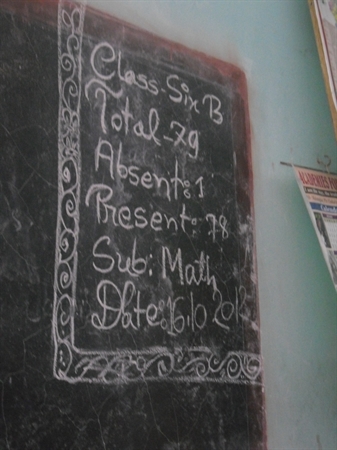 Class-Six B
Total-79
Absent:1
Present: 78
Sub: Math
Date:16.10.2012